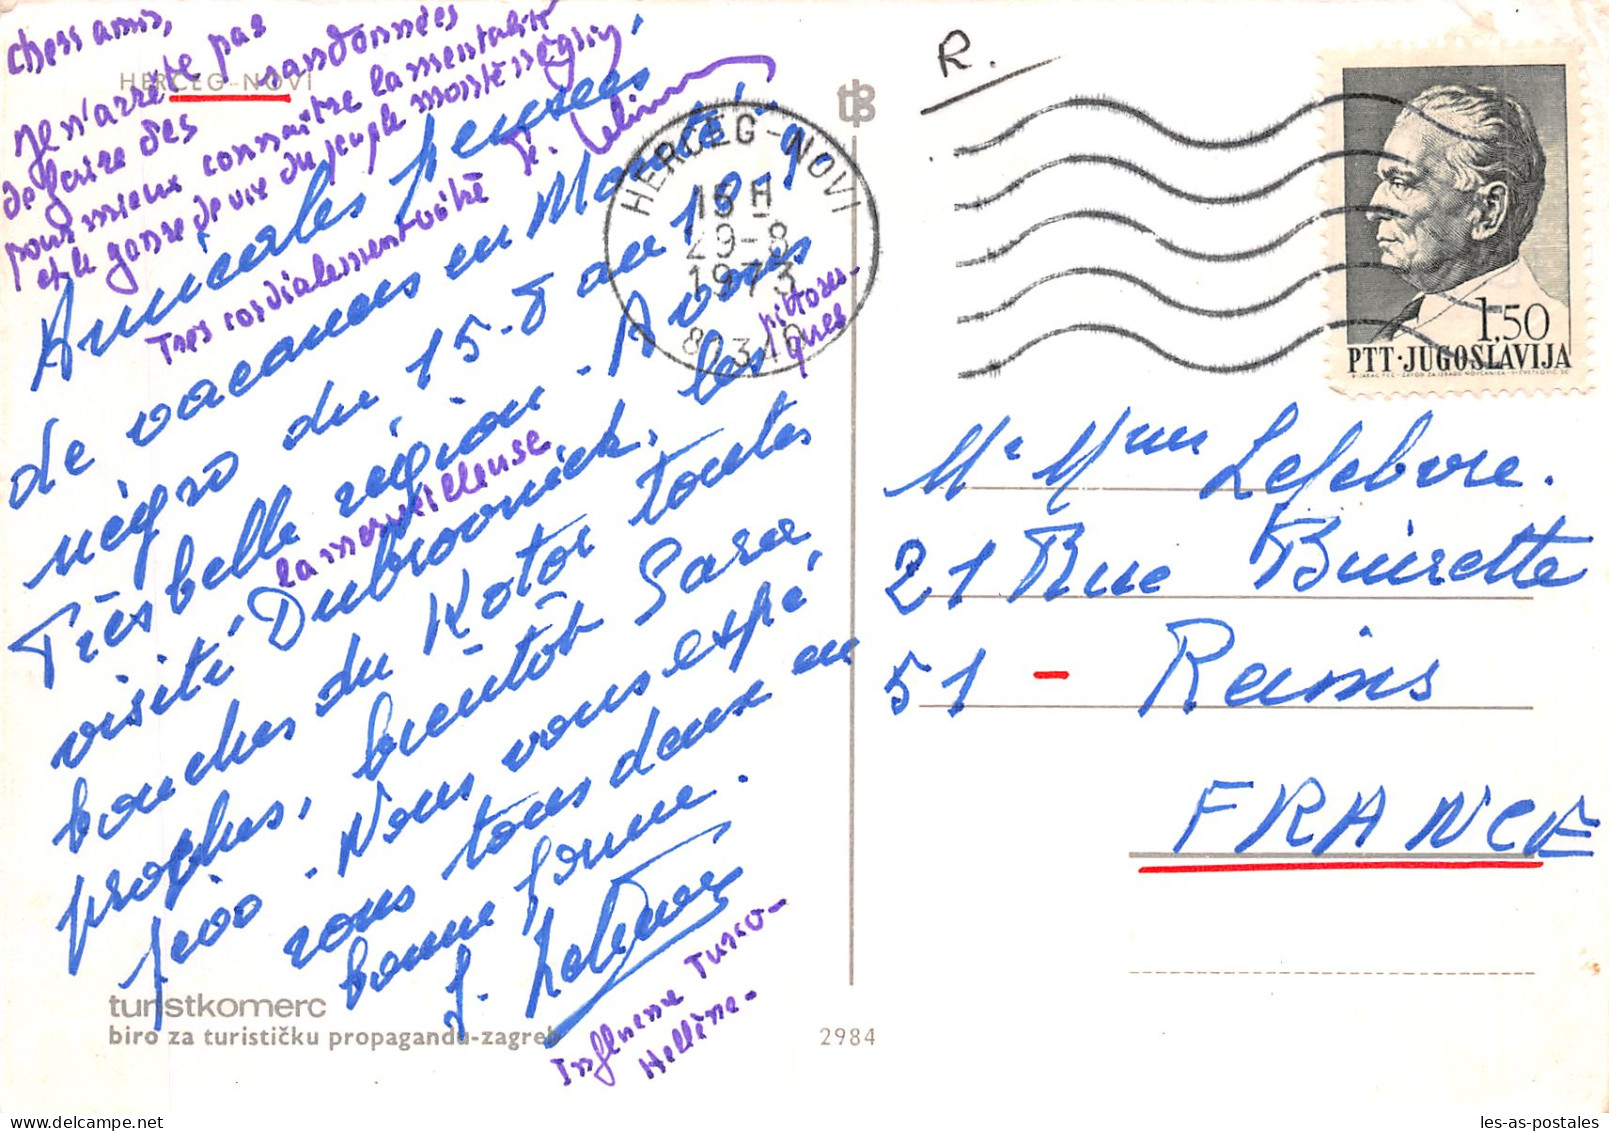 HERCEG-NOVI
chers amis,
Je n'arrête pas
de faire des randonnées
pour mieux connaître la mentalité
et le genre de vie du peuple monténégrin
Très cordialement vôtre
Amicales pensées
de vacances en Monté-
négro du 15-8 au 10-9.
Très belle région. Avons
visité Dubrovnick, les
la merveilleuse
bouches du Kotor toutes
pittores-
ques
proches, bientôt Sara
jevo. Nous vous espé
rons tous deux en
bonne forme.
Influence Turco-
Hellène-
turistkomerc
biro za turističku propagandu-zagreb
2984
tz
R.
HERCEG-NOVI
15 H
29-8
1973
1,50
PTT·JUGOSLAVIJA
Mr Mme Lefebvre.
21 Rue Buirette
51 - Reims
FRANCE
les-as-postales